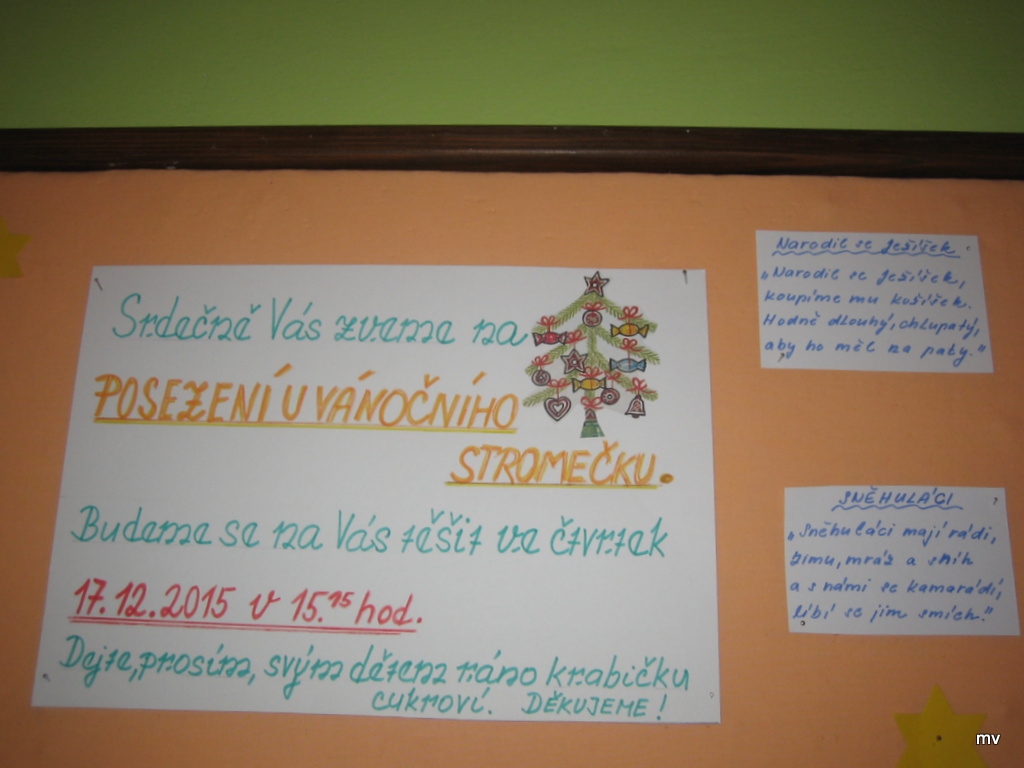 Srdečně Vás zveme na
POSEZENÍ U VÁNOČNÍHO
STROMEČKU.
Budeme se na Vás těšit ve čtvrtek
17.12.2015 v 15.15 hod.
Dejte, prosím, svým dětem ráno krabičku
cukroví. DĚKUJEME!
Narodil se Ježíšek.
„Narodil se Ježíšek,
koupíme mu kožíšek.
Hodně dlouhý, chlupatý,
aby ho měl na paty."
SNĚHULÁCI
„Sněhuláci mají rádi,
zimu, mráz a sníh
a s námi se kamarádí,
líbí se jim smích."
mv